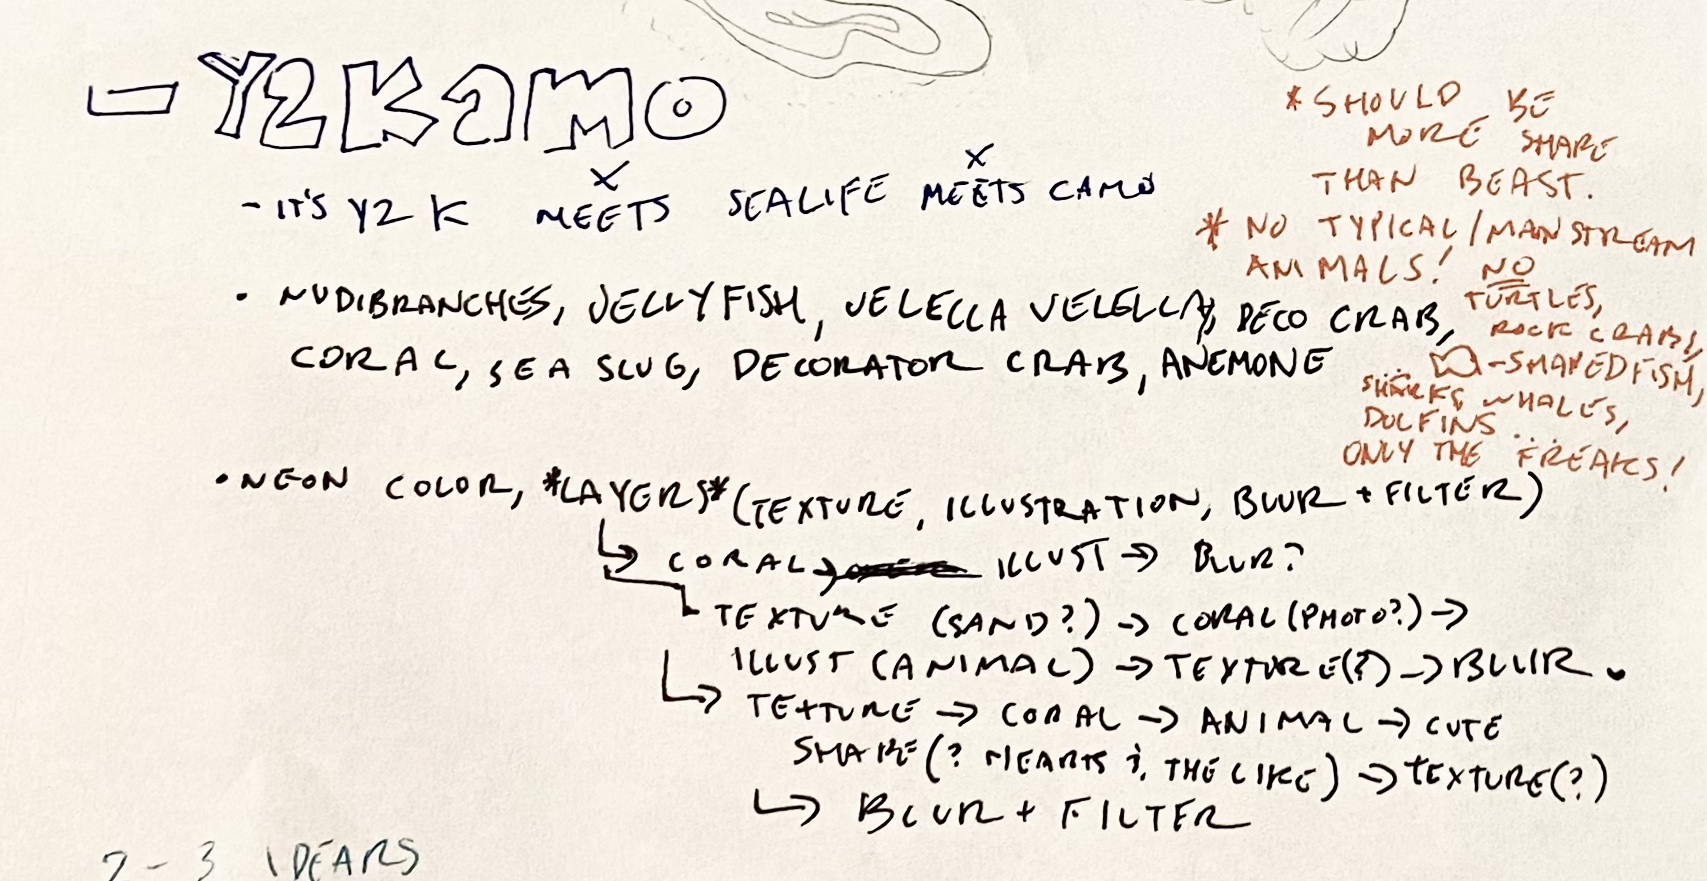 - Y2KAMO
- IT'S Y2K MEETS SEALIFE MEETS CAMO
X X
• NUDIBRANCHES, JELLYFISH, VELELLA VELELLA, DECO CRAB,
CORAL, SEA SLUG, DECORATOR CRAB, ANEMONE
* SHOULD BE
MORE SHAPE
THAN BEAST.
* NO TYPICAL/MAINSTREAM
ANIMALS! NO
TURTLES,
ROCK CRABS,
-SHAPED FISH,
SHARKS, WHALES,
DOLFINS...
ONLY THE FREAKS!
• NEON COLOR, *LAYERS* (TEXTURE, ILLUSTRATION, BLUR + FILTER)
↳ CORAL → ILLUST → BLUR?
↳ TEXTURE (SAND?) → CORAL (PHOTO?) →
ILLUST (ANIMAL) → TEXTURE(?) → BLUR.
↳ TEXTURE → CORAL → ANIMAL → CUTE
SHAPE (? HEARTS & THE LIKE) → TEXTURE(?)
↳ BLUR + FILTER
2-3 IDEARS